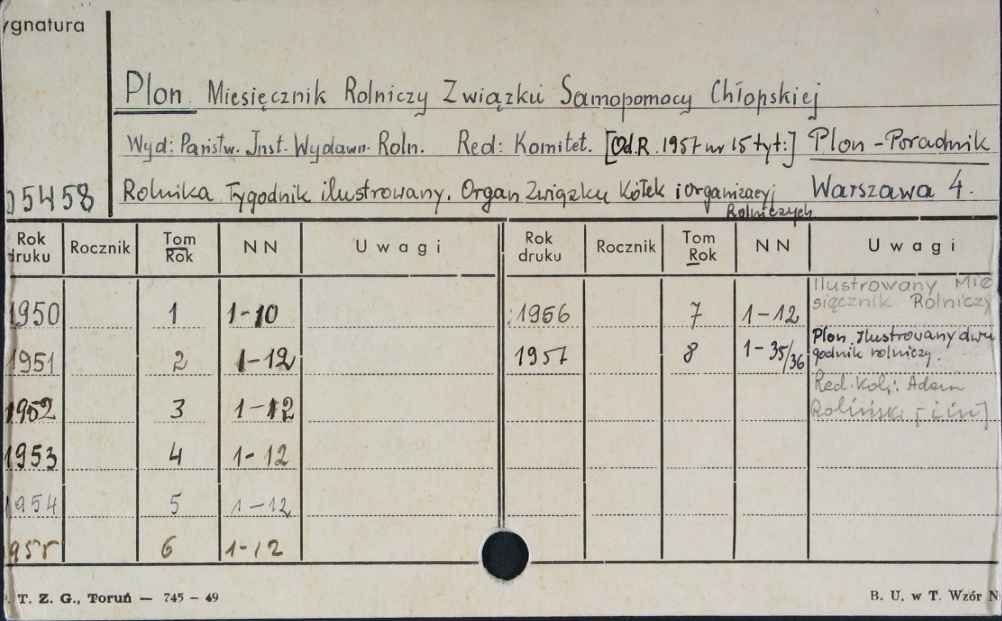 ygnatura
Plon. Miesięcznik Rolniczy Związku Samopomocy Chłopskiej
Wyd: Państw. Inst. Wydawn. Roln. Red: Komitet. [Od R. 1957 nr 15 tyt:] Plon - Poradnik
05458 Rolnika Tygodnik ilustrowany. Organ Związku Kółek i organizacyj Warszawa 4.
Rolniczych
Rok druku Rocznik Tom Rok N N Uwagi Rok druku Rocznik Tom Rok N N Uwagi
Ilustrowany Mie
1950 1 1-10 1956 7 1-12 sięcznik Rolniczy
Plon. Ilustrowany dwu
1951 2 1-12 1957 8 1-35/36 godnik rolniczy.
Red. Kol: Adam
1952 3 1-12 Roliński [i in]
1953 4 1-12
1954 5 1-12
955 6 1-12
T. Z. G., Toruń — 745 – 49 B. U. w T. Wzór N